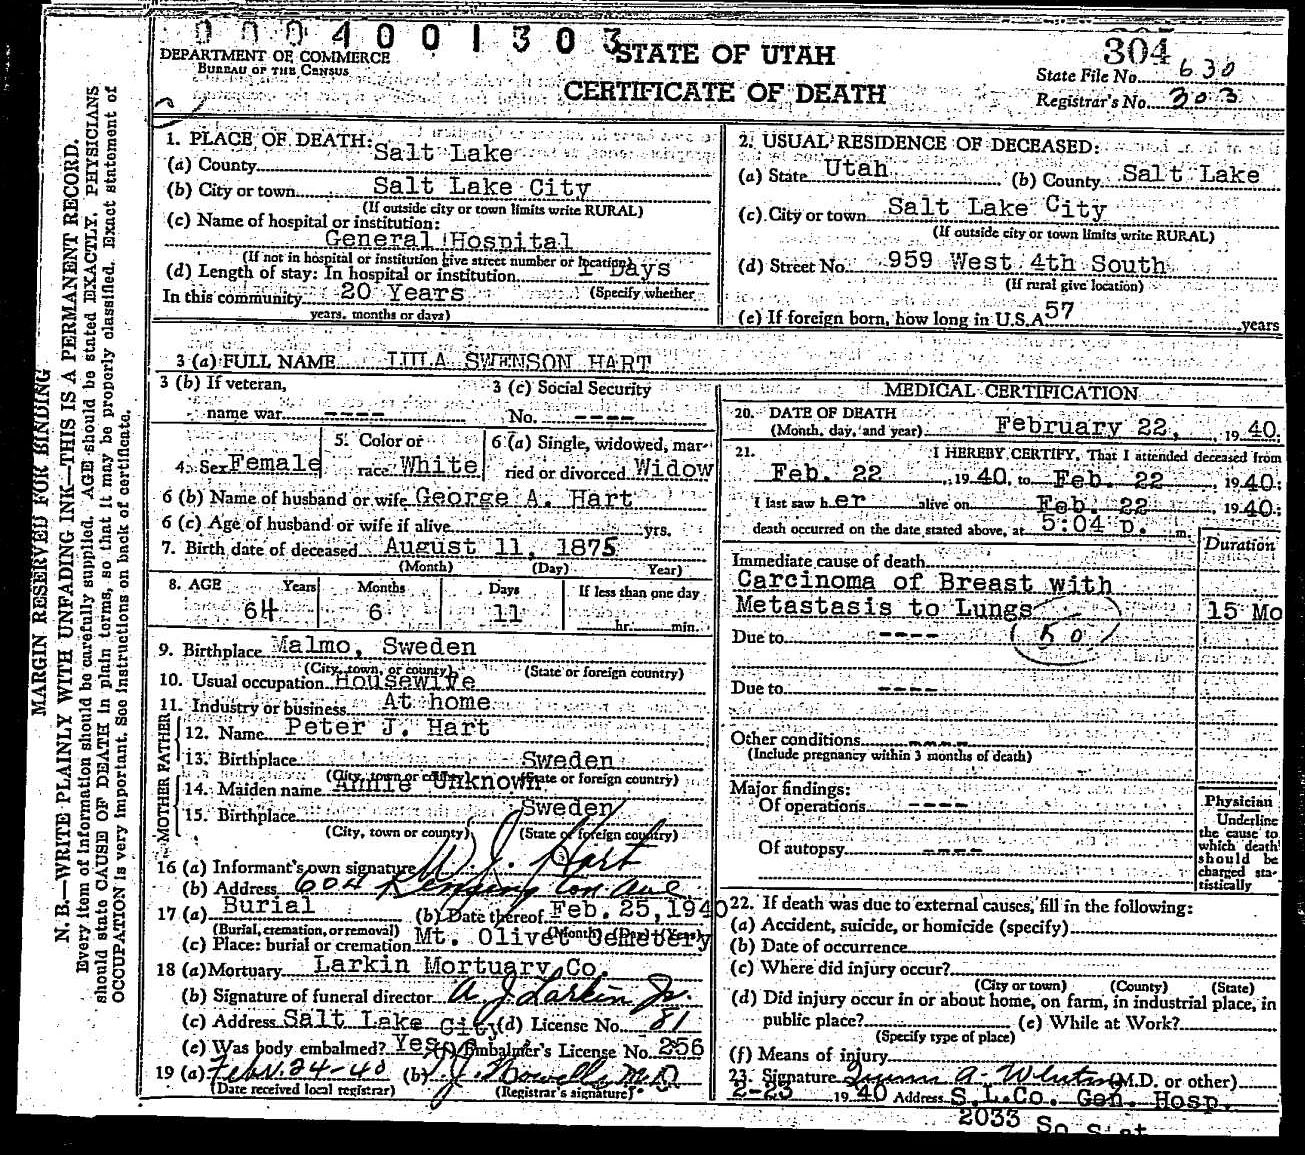 0004001303
STATE OF UTAH
304
DEPARTMENT OF COMMERCE
BUREAU OF THE CENSUS
CERTIFICATE OF DEATH
State File No. 630
Registrar's No. 303
1. PLACE OF DEATH:
(a) County Salt Lake
(b) City or town Salt Lake City
(If outside city or town limits write RURAL)
(c) Name of hospital or institution:
General Hospital
(If not in hospital or institution give street number or location)
(d) Length of stay: In hospital or institution 1 Days
In this community 20 Years (Specify whether
years, months or days)
2. USUAL RESIDENCE OF DECEASED:
(a) State Utah (b) County Salt Lake
(c) City or town Salt Lake City
(If outside city or town limits write RURAL)
(d) Street No. 959 West 4th South
(If rural give location)
(e) If foreign born, how long in U.S.A. 57 years
3 (a) FULL NAME SWENSON HART
3 (b) If veteran,
name war ----
3 (c) Social Security
No. ----
4. Sex Female
5. Color or
race White
6 (a) Single, widowed, mar-
ried or divorced Widow
6 (b) Name of husband or wife George A. Hart
6 (c) Age of husband or wife if alive yrs.
7. Birth date of deceased August 11, 1875
(Month) (Day) Year)
8. AGE Years Months Days If less than one day
64 6 11 hr. min.
9. Birthplace Malmo, Sweden
(City, town, or county) (State or foreign country)
10. Usual occupation Housewife
11. Industry or business At home
FATHER
12. Name Peter J. Hart
13. Birthplace Sweden
(City, town or county) (State or foreign country)
MOTHER
14. Maiden name Annie Unknown
15. Birthplace Sweden
(City, town or county) (State or foreign country)
16 (a) Informant's own signature W. J. Hart
(b) Address 604 Kensington Ave
17 (a) Burial (b) Date thereof Feb. 25, 1940
(Burial, cremation, or removal) (Month) (Day) (Year)
(c) Place: burial or cremation Mt. Olivet Cemetery
18 (a) Mortuary Larkin Mortuary Co.
(b) Signature of funeral director A. J. Larkin Jr.
(c) Address Salt Lake City (d) License No. 81
(e) Was body embalmed? Yes (f) Embalmer's License No. 256
19 (a) Feb. 24-40 (b) M.D.
(Date received local registrar) (Registrar's signature)
MEDICAL CERTIFICATION
20. DATE OF DEATH
(Month, day, and year) February 22, 1940
21. I HEREBY CERTIFY, That I attended deceased from
Feb. 22, 1940, to Feb. 22, 1940;
I last saw her alive on Feb. 22 1940;
death occurred on the date stated above, at 5:04 p. m.
Duration
Immediate cause of death
Carcinoma of Breast with
Metastasis to Lungs 15 Mo
Due to ---- (50)
Due to ----
Other conditions ----
(Include pregnancy within 3 months of death)
Major findings:
Of operations ----
Of autopsy ----
Physician
Underline
the cause to
which death
should be
charged sta-
tistically
22. If death was due to external causes, fill in the following:
(a) Accident, suicide, or homicide (specify)
(b) Date of occurrence
(c) Where did injury occur?
(City or town) (County) (State)
(d) Did injury occur in or about home, on farm, in industrial place, in
public place? (e) While at Work?
(Specify type of place)
(f) Means of injury
23. Signature (M.D. or other)
2-23 1940 Address S.L.Co. Gen. Hosp.
2033 So
MARGIN RESERVED FOR BINDING
N. B.—WRITE PLAINLY WITH UNFADING INK—THIS IS A PERMANENT RECORD.
Every item of information should be carefully supplied. AGE should be stated EXACTLY. PHYSICIANS
should state CAUSE OF DEATH in plain terms, so that it may be properly classified. Exact statement of
OCCUPATION is very important. See instructions on back of certificate.